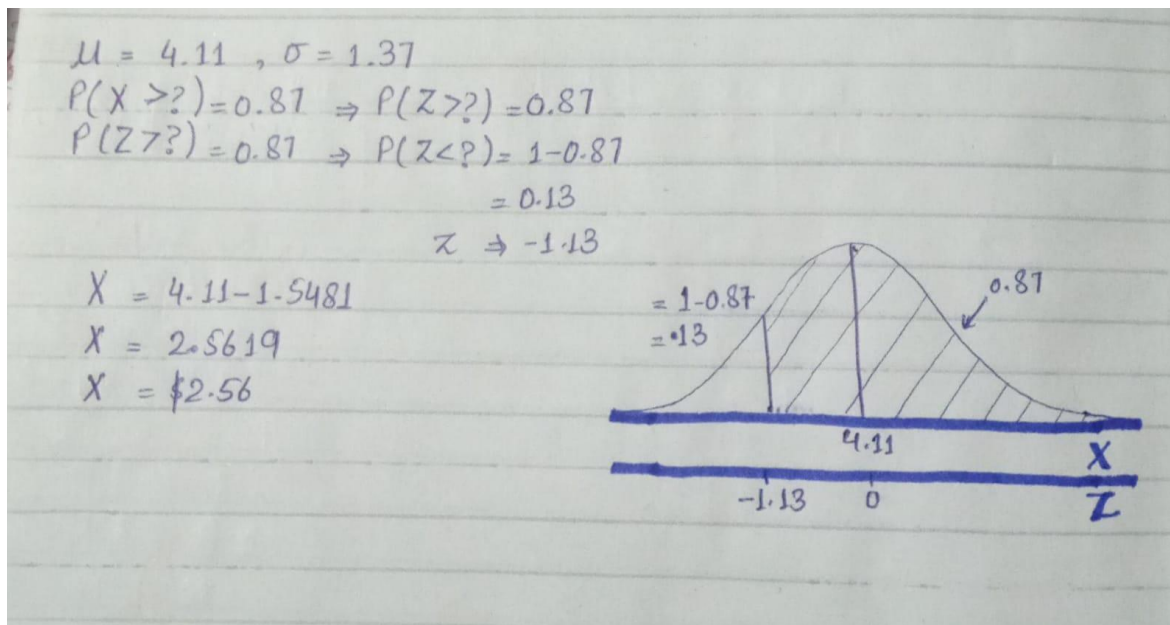 μ = 4.11 , σ = 1.37
P(X >?) = 0.87 ⇒ P(Z>?) = 0.87
P(Z>?) = 0.87 ⇒ P(Z<?) = 1-0.87
= 0.13
Z ⇒ -1.13
X = 4.11-1.5481
X = 2.5619
X = $2.56
= 1-0.87
= •13
0.87
4.11
X
-1.13 0
Z